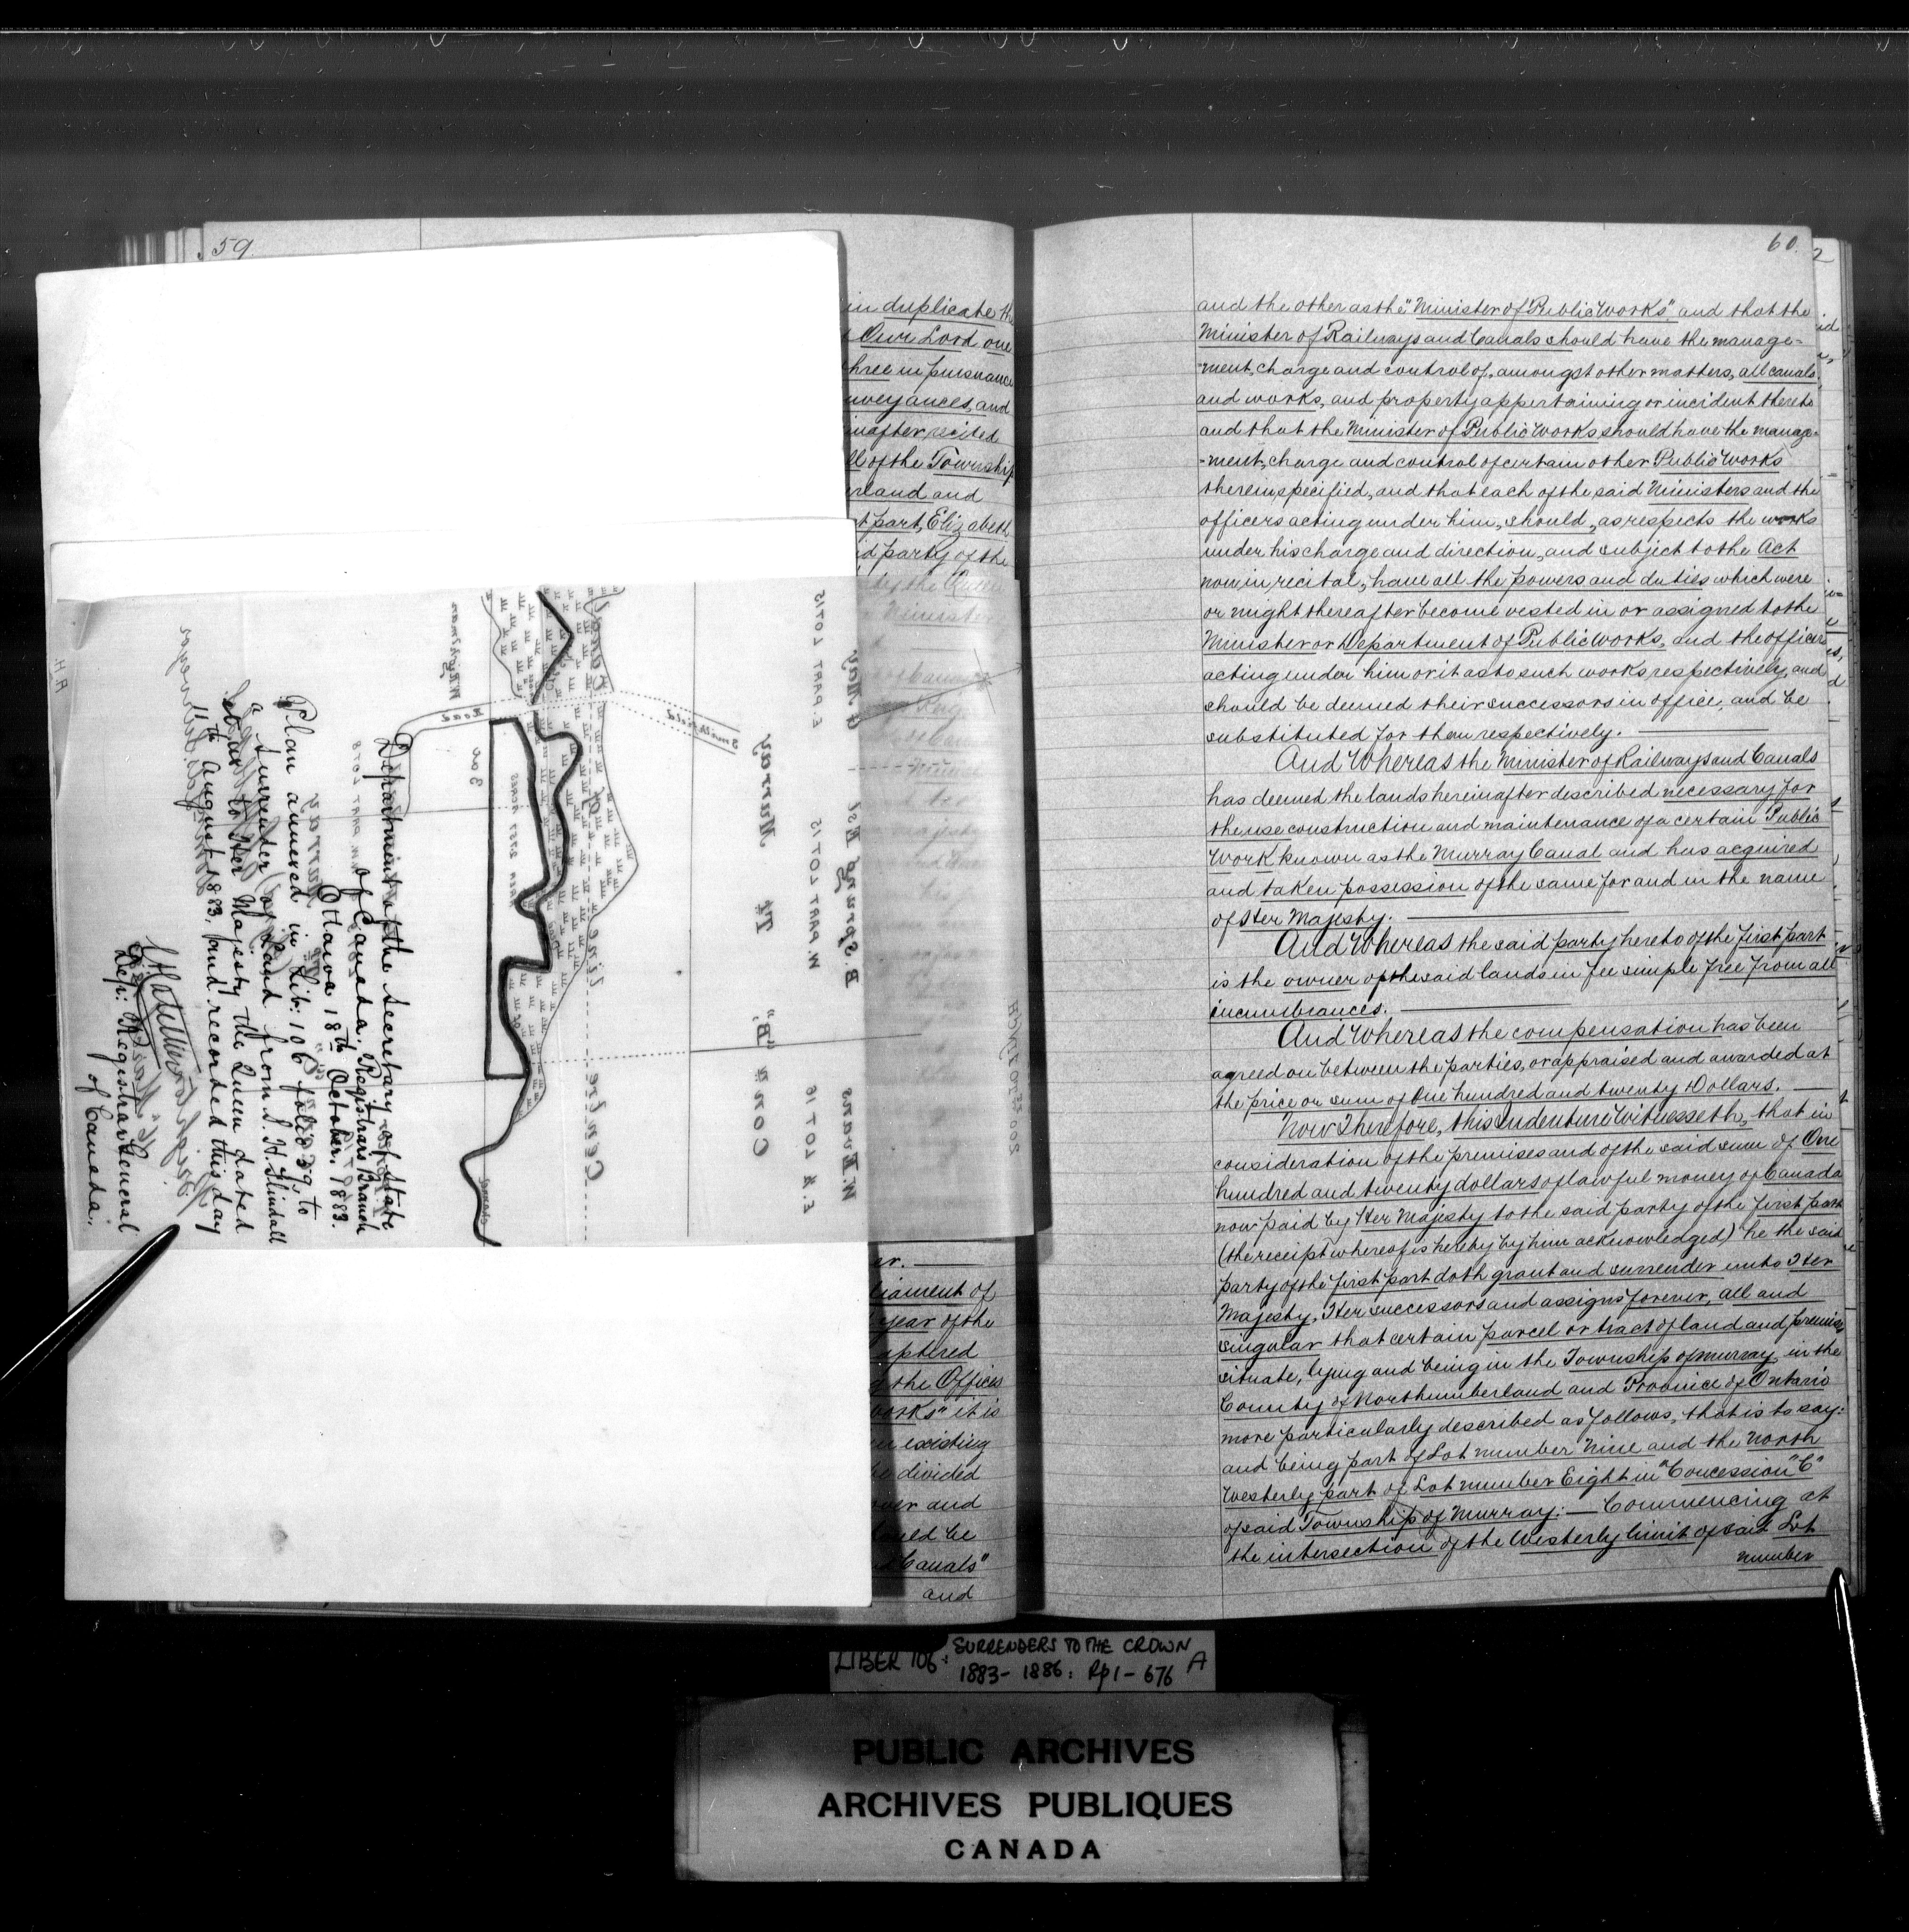 59.
in duplicate the
Our Lord one
three in pursuance
veyances, and
inafter recited
ll of the Township
erland and
t part, Elizabeth
id party of the
Department of the Secretary of State
of Canada. Registrar's Branch
Ottawa 18th October. 1883.
Plan annexed in Lib: 106 folio 39, to
a Surrender (of Land from
to Her Majesty the Queen dated
11th August 1883, and recorded this day
Dep: Registrar General
of Canada.
W. Ferguson
Road
3 ac
Smithfield
Centre Line of
Murray
Con. "B"
E. PART LOT 15
W. PART LOT 15
E. ½ LOT 16
W. Evans
er.
liament of
year of the
aptered
g the Offices
Works" it is
en existing
be divided
over and
ould be
Canals"
and
60.
and the other as the "Minister of Public Works" and that the
Minister of Railways and Canals should have the manage=
=ment, charge and control of, amongst other matters, all canals
and works, and property appertaining or incident thereto
and that the Minister of Public Works should have the manage=
=ment, charge and control of certain other Public Works
therein specified, and that each of the said Ministers and the
officers acting under him, should, as respects the works
under his charge and direction, and subject to the Act
now in recital, have all the powers and duties which were
or might thereafter become vested in or assigned to the
Minister or Department of Public Works, and the officers
acting under him or it as to such works respectively, and
should be deemed their successors in office, and be
substituted for them respectively.
And Whereas the Minister of Railways and Canals
has deemed the lands hereinafter described necessary for
the use construction and maintenance of a certain Public
Work known as the Murray Canal and has acquired
and taken possession of the same for and in the name
of Her Majesty.
And Whereas the said party hereto of the first part
is the owner of the said lands in fee simple free from all
incumbrances.
And Whereas the compensation has been
agreed on between the parties, or appraised and awarded at
the price or sum of One hundred and twenty Dollars.
Now Therefore, this Indenture Witnesseth, that in
consideration of the premises and of the said sum of One
hundred and twenty dollars of lawful money of Canada
now paid by Her Majesty to the said party of the first part
(the receipt whereof is hereby by him acknowledged) he the said
party of the first part doth grant and surrender unto Her
Majesty, Her successors and assigns forever, all and
singular that certain parcel or tract of land and premises
situate, lying and being in the Township of Murray in the
County of Northumberland and Province of Ontario
more particularly described as follows, that is to say:
and being part of Lot number Nine and the North
Westerly part of Lot number Eight in "Concession "C"
of said Township of Murray: — Commencing at
the intersection of the Westerly limit of said Lot
number
LIBER 106: SURRENDERS TO THE CROWN
1883-1886: Pp 1-676 A
PUBLIC ARCHIVES
ARCHIVES PUBLIQUES
CANADA